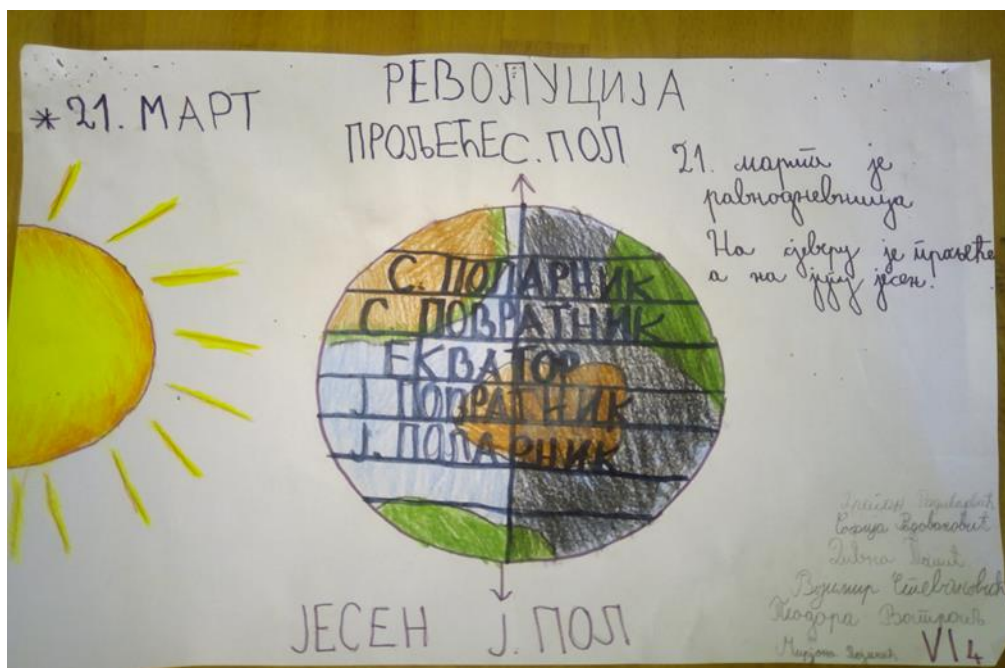 * 21. МАРТ
РЕВОЛУЦИЈА
ПРОЉЕЋЕ С. ПОЛ
21. марта је
равнодневница
На сјеверу је прољеће
а на југу јесен.
С. ПОЛАРНИК
С. ПОВРАТНИК
ЕКВАТОР
Ј. ПОВРАТНИК
Ј. ПОЛАРНИК
ЈЕСЕН Ј. ПОЛ
Софија
Дивна
Војимир Стевановић
Теодора
VI4